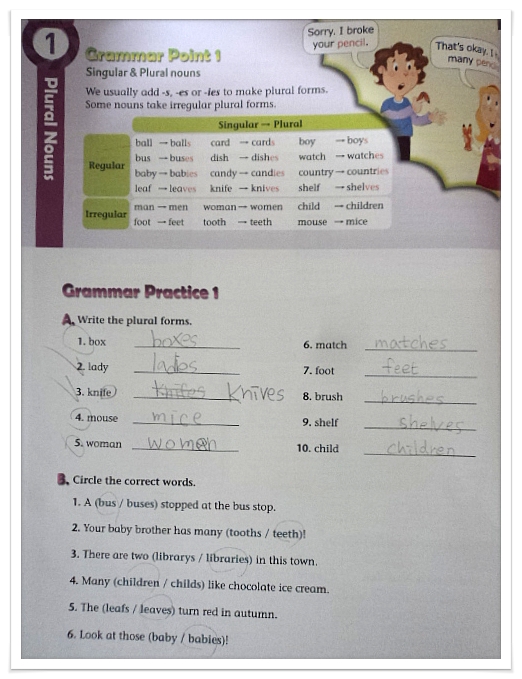 1
Plural Nouns
Grammar Point 1
Singular & Plural nouns
We usually add -s, -es or -ies to make plural forms.
Some nouns take irregular plural forms.
Sorry. I broke
your pencil.
That's okay. I
many penc
Singular → Plural
Regular
ball → balls card → cards boy → boys
bus → buses dish → dishes watch → watches
baby → babies candy → candies country → countries
leaf → leaves knife → knives shelf → shelves
Irregular
man → men woman → women child → children
foot → feet tooth → teeth mouse → mice
Grammar Practice 1
A. Write the plural forms.
1. box boxes
2. lady
3. knife knifes Knives
4. mouse mice
5. woman women
6. match matches
7. foot feet
8. brush brushes
9. shelf shelves
10. child children
B. Circle the correct words.
1. A (bus / buses) stopped at the bus stop.
2. Your baby brother has many (tooths / teeth)!
3. There are two (librarys / libraries) in this town.
4. Many (children / childs) like chocolate ice cream.
5. The (leafs / leaves) turn red in autumn.
6. Look at those (baby / babies)!